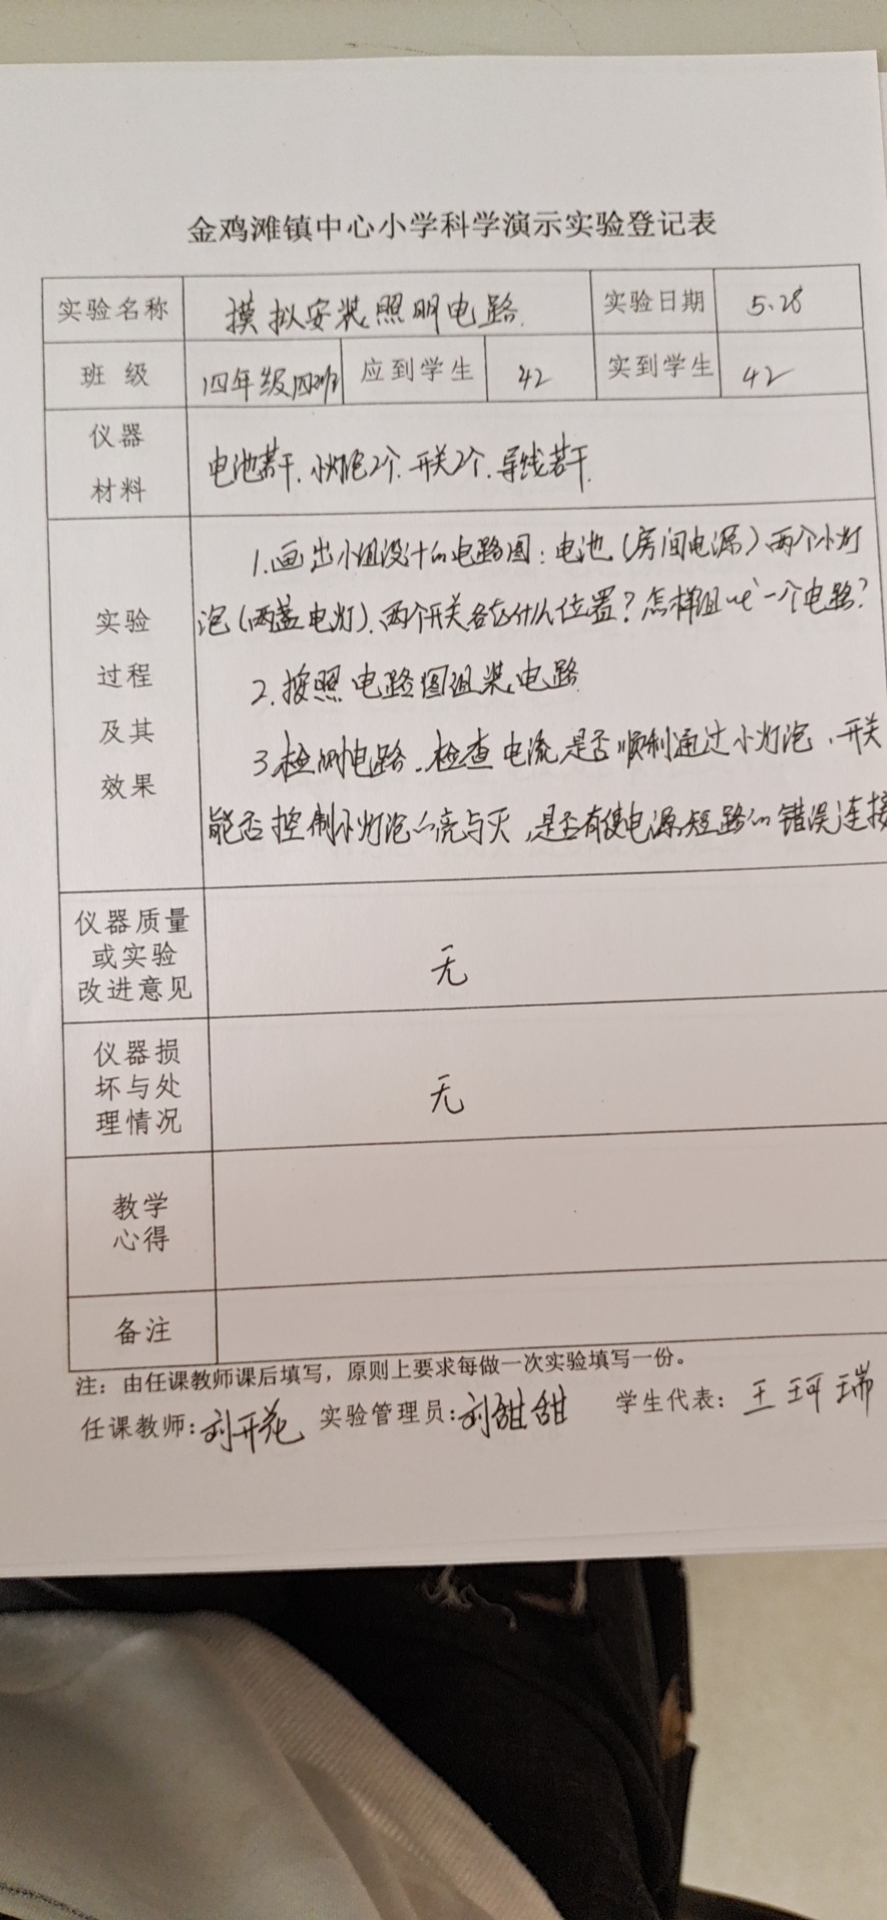 金鸡滩镇中心小学科学演示实验登记表
实验名称 摸拟安装照明电路 实验日期 5.28
班 级 四年级四班 应到学生 42 实到学生 42
仪器
材料
电池若干.小灯泡2个.开关2个.导线若干.
实验
过程
及其
效果
1.画出小组设计的电路图:电池(房间电源)两个小灯
泡(两盏电灯).两个开关各在什么位置?怎样组成一个电路?
2.按照电路图组装电路
3.检测电路.检查电流是否顺利通过小灯泡.开关
能否控制小灯泡的亮与灭,是否有使电源短路的错误连接
仪器质量
或实验
改进意见
无
仪器损
坏与处
理情况
无
教学
心得
备注
注:由任课教师课后填写,原则上要求每做一次实验填写一份。
任课教师:刘开花 实验管理员:刘甜甜 学生代表:王珂瑞